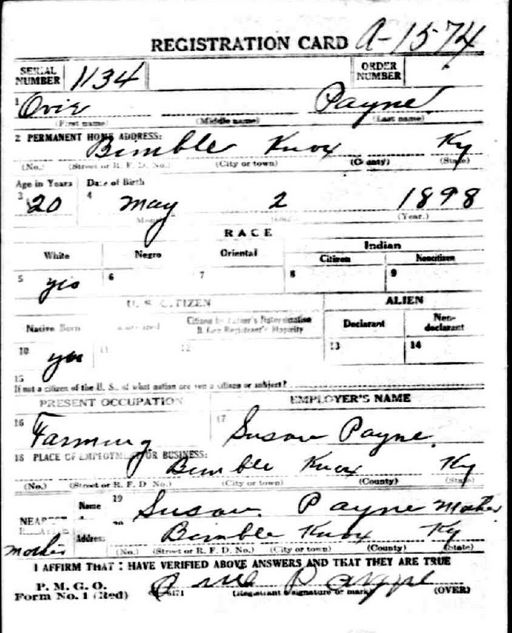 REGISTRATION CARD A-1574
SERIAL NUMBER 1134 ORDER NUMBER
1 Ovie Payne
(First name) (Middle name) (Last name)
2 PERMANENT HOME ADDRESS:
Bimble Knox Ky
(No.) (Street or R. F. D. No.) (City or town) (County) (State)
Age in Years Date of Birth
3 20 4 May 2 1898
(Year.)
RACE
White Negro Oriental Indian
Citizen Noncitizen
5 yes 6 7 8 9
U. S. CITIZEN ALIEN
Native Born Citizen by Father's Naturalization Before Registrant's Majority Declarant Non-declarant
10 yes 11 12 13 14
15
If not a citizen of the U. S., of what nation are you a citizen or subject?
PRESENT OCCUPATION EMPLOYER'S NAME
16 Farming 17 Susan Payne
18 PLACE OF EMPLOYMENT OR BUSINESS:
Bimble Knox Ky
(No.) (Street or R. F. D. No.) (City or town) (County) (State)
Name 19 Susan Payne Mother
NEAREST
Address 20 Bimble Knox Ky
Mother (No.) (Street or R. F. D. No.) (City or town) (County) (State)
I AFFIRM THAT I HAVE VERIFIED ABOVE ANSWERS AND THAT THEY ARE TRUE
P. M. G. O.
Form No. 1 (Red) Payne
(Registrant's signature or mark) (OVER)